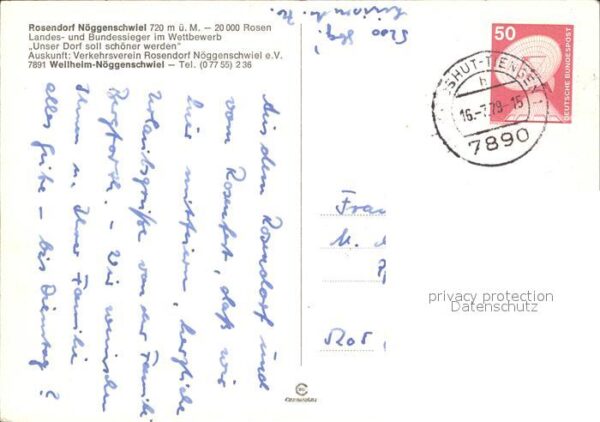 Rosendorf Nöggenschwiel 720 m ü. M. — 20 000 Rosen
Landes- und Bundessieger im Wettbewerb
„Unser Dorf soll schöner werden"
Auskunft: Verkehrsverein Rosendorf Nöggenschwiel e.V.
7891 Weilheim-Nöggenschwiel — Tel. (0 77 55) 2 36
Aus dem Rosendorf und
vom Rosenfest, daß wir
hier mitfeiern, herzliche
Urlaubsgrüße von der Familie
- Wir wünschen
Ihnen u. Ihrer Familie
alles Gute - bis Dienstag!
5200
50
DEUTSCHE BUNDESPOST
SHUT-TIENGEN 1
h
16.-7.79-15
7890
Frau
M.
privacy protection
Datenschutz